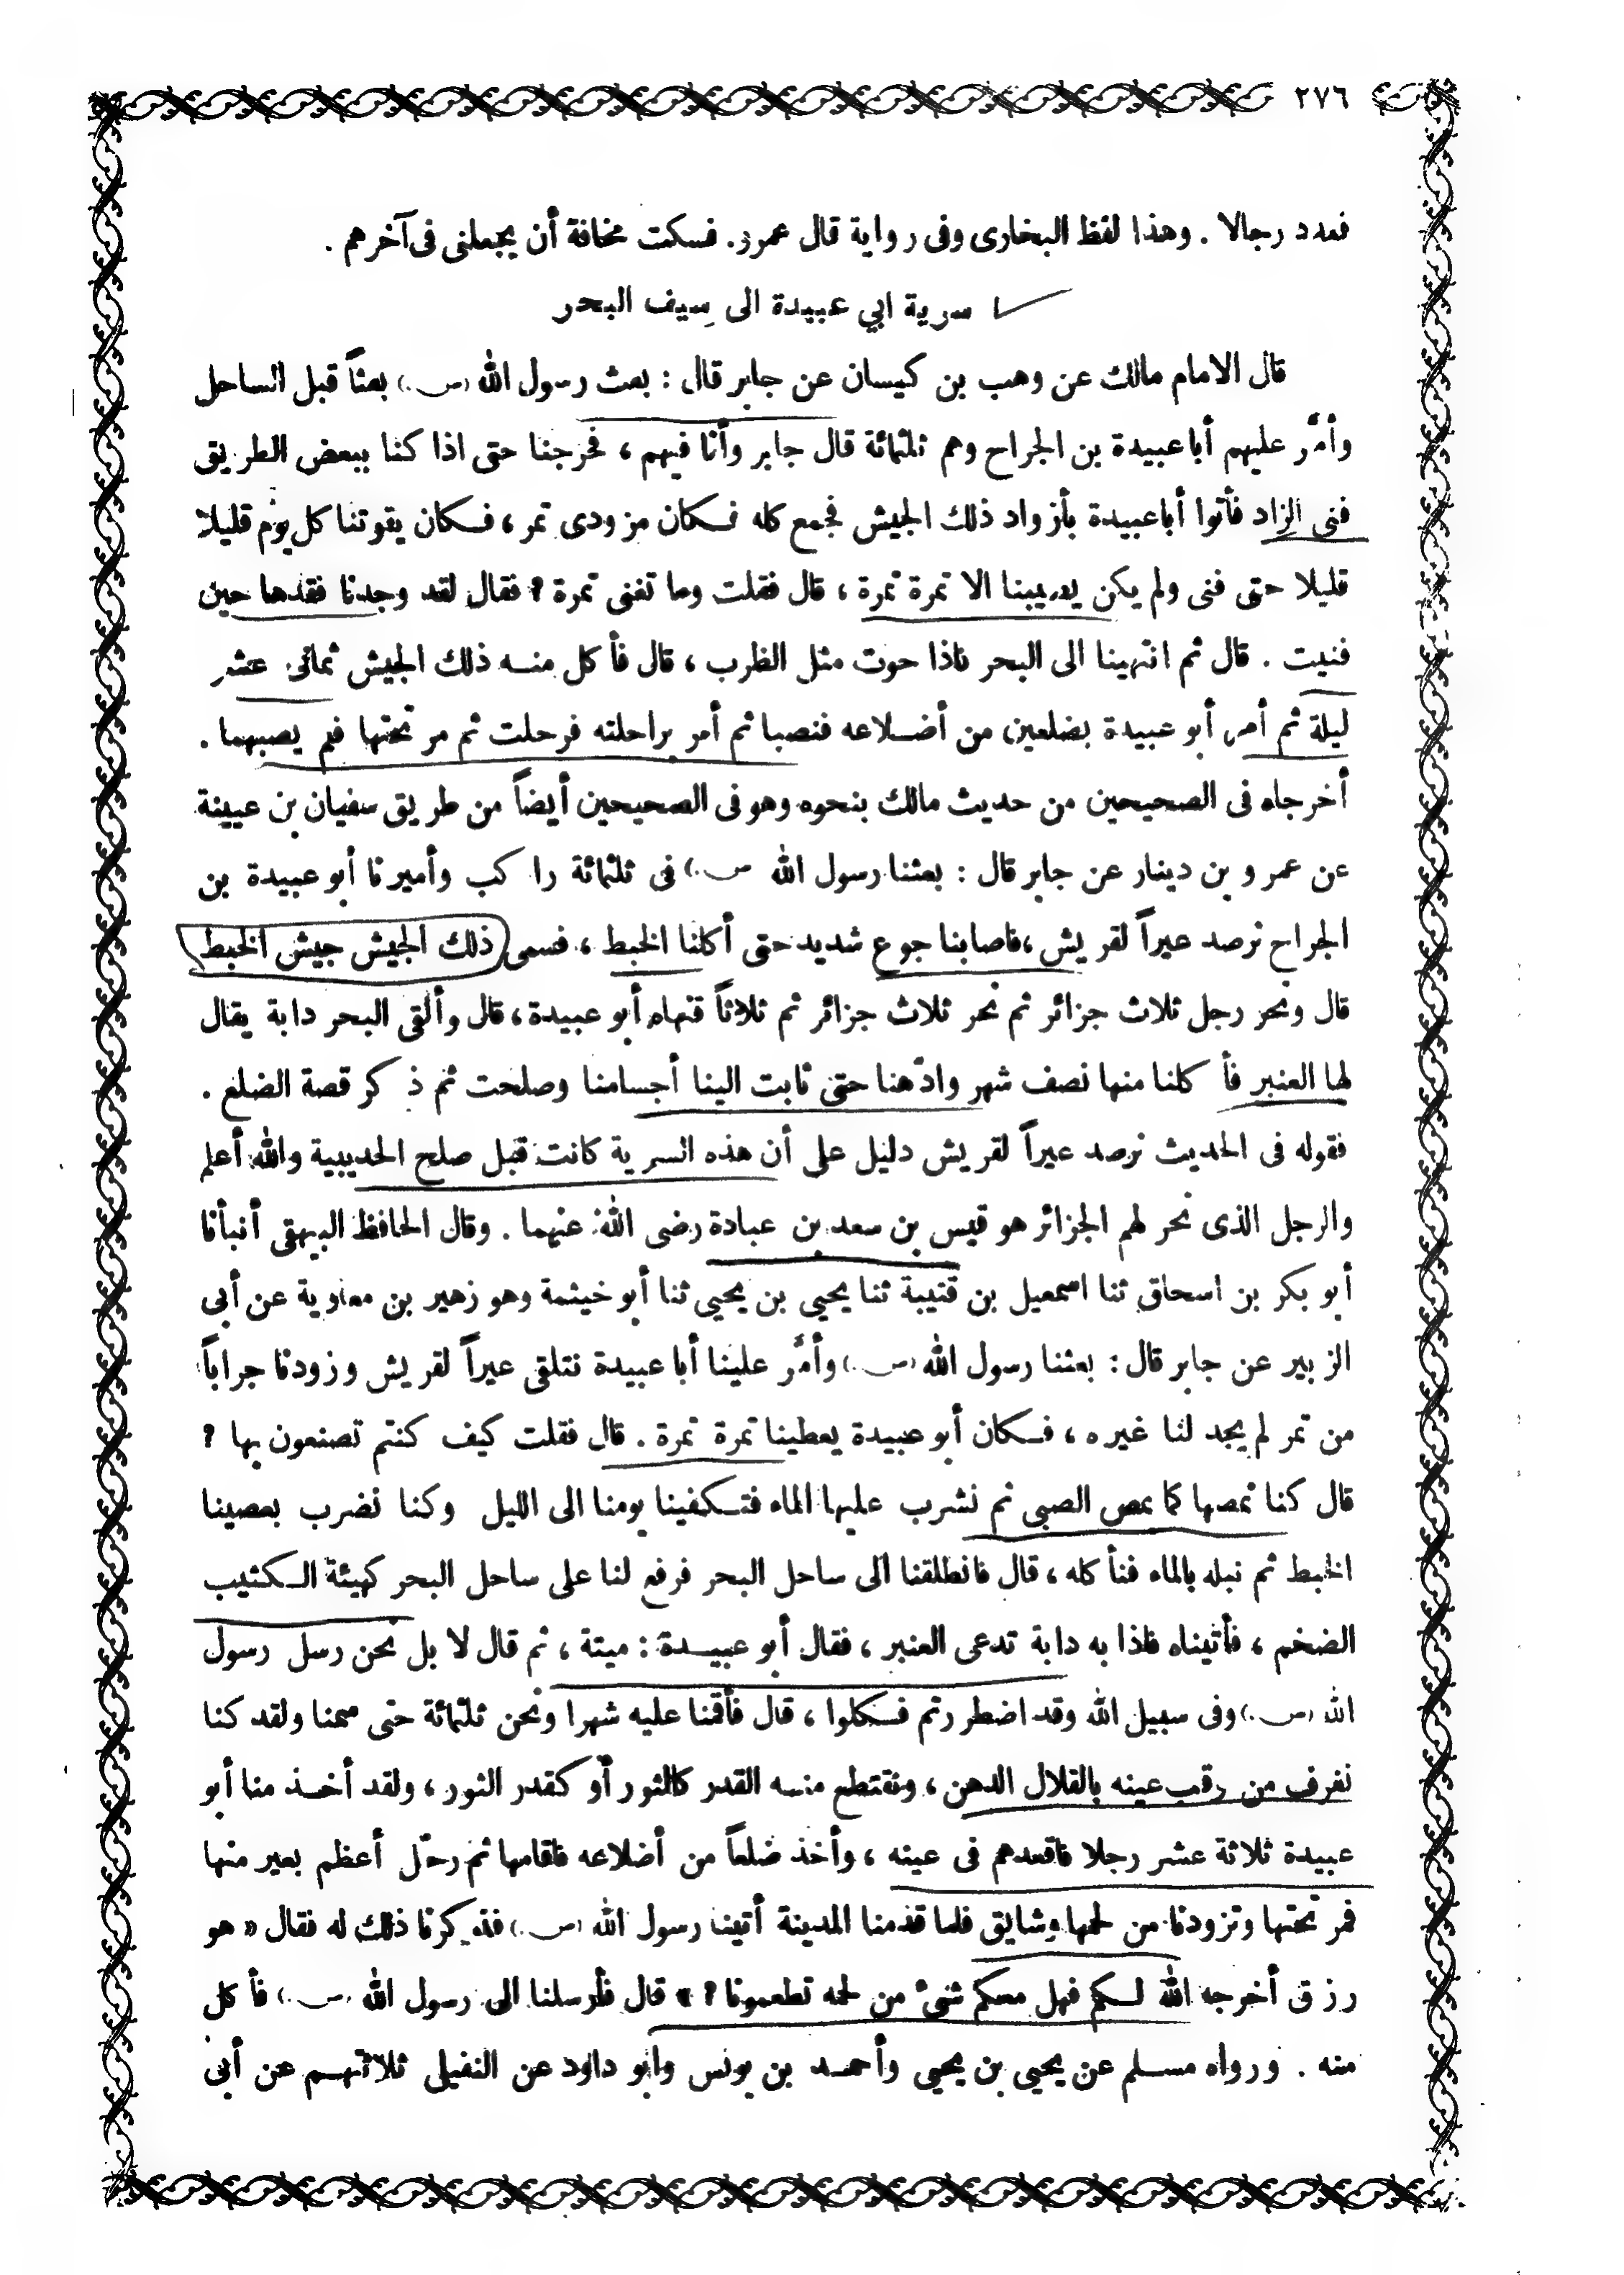 ٢٧٦
فعدد رجالا . وهذا لفظ البخارى وفى رواية قال عمرو. فسكت مخافة أن يجعلنى فى آخرهم .
سرية ابي عبيدة الى سِيف البحر
قال الامام مالك عن وهب بن كيسان عن جابر قال : بعث رسول الله (ص.) بعثاً قبل الساحل
وأمَّر عليهم أبا عبيدة بن الجراح وهم ثلثمائة قال جابر وأنا فيهم ، فخرجنا حتى اذا كنا ببعض الطريق
فنى الزاد فأتوا أبا عبيدة بأزواد ذلك الجيش فجمع كله فكان مزودى تمر ، فكان يقوتنا كل يوم قليلا
قليلا حتى فنى ولم يكن يصيبنا الا تمرة تمرة ، قال فقلت وما تغنى تمرة ؟ فقال لقد وجدنا فقدها حين
فنيت . قال ثم انتهينا الى البحر فاذا حوت مثل الظرب ، قال فأكل منه ذلك الجيش ثمانى عشر
ليلة ثم أمر أبو عبيدة بضلعين من أضلاعه فنصبا ثم أمر براحلته فرحلت ثم مر تحتها فلم يصبهما .
أخرجاه فى الصحيحين من حديث مالك بنحوه وهو فى الصحيحين أيضاً من طريق سفيان بن عيينة
عن عمرو بن دينار عن جابر قال : بعثنا رسول الله ص.) فى ثلثمائة راكب وأميرنا أبو عبيدة بن
الجراح نرصد عيراً لقريش ، فاصابنا جوع شديد حتى أكلنا الخبط ، فسمى ذلك الجيش جيش الخبط
قال ونحر رجل ثلاث جزائر ثم نحر ثلاث جزائر ثم ثلاثاً فنهاه أبو عبيدة ، قال وألقى البحر دابة يقال
لها العنبر فأكلنا منها نصف شهر وادّهنا حتى ثابت الينا أجسامنا وصلحت ثم ذكر قصة الضلع .
فقوله فى الحديث نرصد عيراً لقريش دليل على أن هذه السرية كانت قبل صلح الحديبية والله أعلم
والرجل الذى نحر لهم الجزائر هو قيس بن سعد بن عبادة رضى الله عنهما . وقال الحافظ البيهقى أنبأنا
أبو بكر بن اسحاق ثنا اسمعيل بن قتيبة ثنا يحيى بن يحيى ثنا أبو خيثمة وهو زهير بن معاوية عن أبى
الزبير عن جابر قال : بعثنا رسول الله (ص.) وأمَّر علينا أبا عبيدة نتلقى عيراً لقريش وزودنا جراباً
من تمر لم يجد لنا غيره ، فكان أبو عبيدة يعطينا تمرة تمرة . قال فقلت كيف كنتم تصنعون بها ؟
قال كنا نمصها كما يمص الصبى ثم نشرب عليها الماء فتكفينا يومنا الى الليل وكنا نضرب بعصينا
الخبط ثم نبله بالماء فنأكله ، قال فانطلقنا الى ساحل البحر فرفع لنا على ساحل البحر كهيئة الكثيب
الضخم ، فأتيناه فاذا به دابة تدعى العنبر ، فقال أبو عبيدة : ميتة ، ثم قال لا بل نحن رسل رسول
الله (ص.) وفى سبيل الله وقد اضطررتم فكلوا ، قال فأقمنا عليه شهرا ونحن ثلثمائة حتى سمنا ولقد كنا
نغرف من وقب عينه بالقلال الدهن ، ونقتطع منه القدر كالثور أو كقدر الثور ، ولقد أخذ منا أبو
عبيدة ثلاثة عشر رجلا فاقعدهم فى عينه ، وأخذ ضلعاً من أضلاعه فاقامها ثم رحّل أعظم بعير منها
فمر تحتها وتزودنا من لحمها وشايق فلما قدمنا المدينة أتينا رسول الله (ص.) فذكرنا ذلك له فقال « هو
رزق أخرجه الله لكم فهل معكم شىء من لحمه تطعمونا ؟ » قال فأرسلنا الى رسول الله (ص.) فأكل
منه . ورواه مسلم عن يحيى بن يحيى وأحمد بن يونس وأبو داود عن النفيلى ثلاثتهم عن أبى